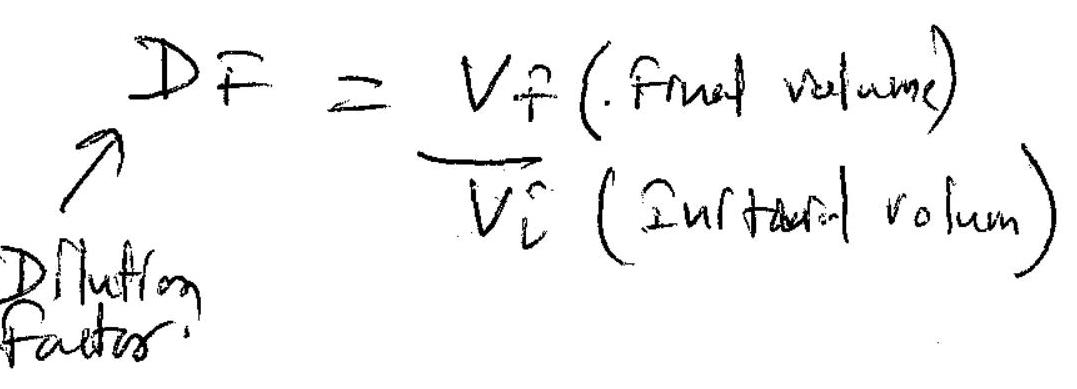 DF = Vf (Final volume)
Vi ( volum)
Dilution
Factor.